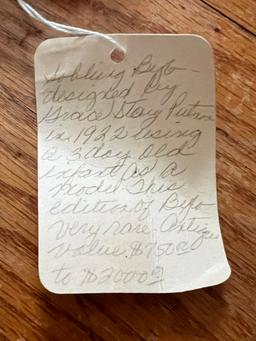 Bylo -
designed by
Grace Story Putnam
in 1922 using
a 3 day old
infant as a
model This
edition of Bylo
very rare. Antique
value $750.00
to $2000.00